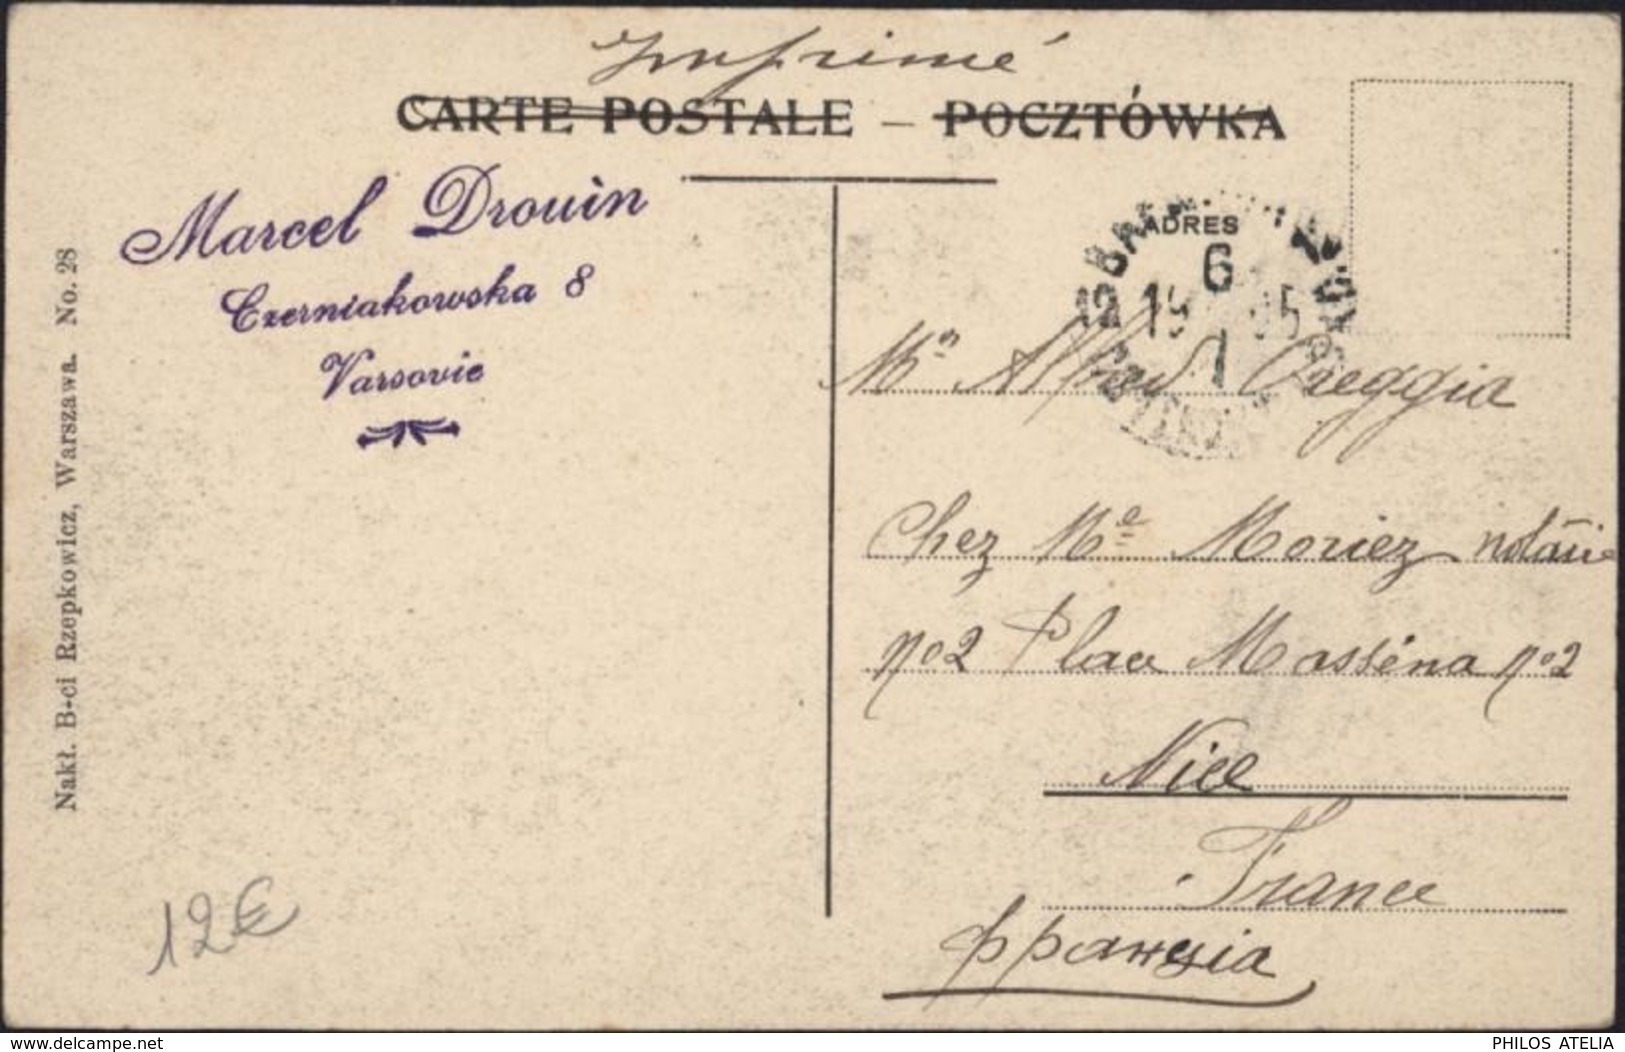 Imprimé
CARTE POSTALE – POCZTÓWKA
Marcel Drouin
Czerniakowska 8
Varsovie
ADRES
6
19
1
Mr Alfred Oreggia
Chez Me Moriez notaire
no2 Place Masséna no2
Nice
France
Франция
Nakł. B-ci Rzepkowicz, Warszawa. No. 28
12€
delcampe.net
PHILOS ATELIA